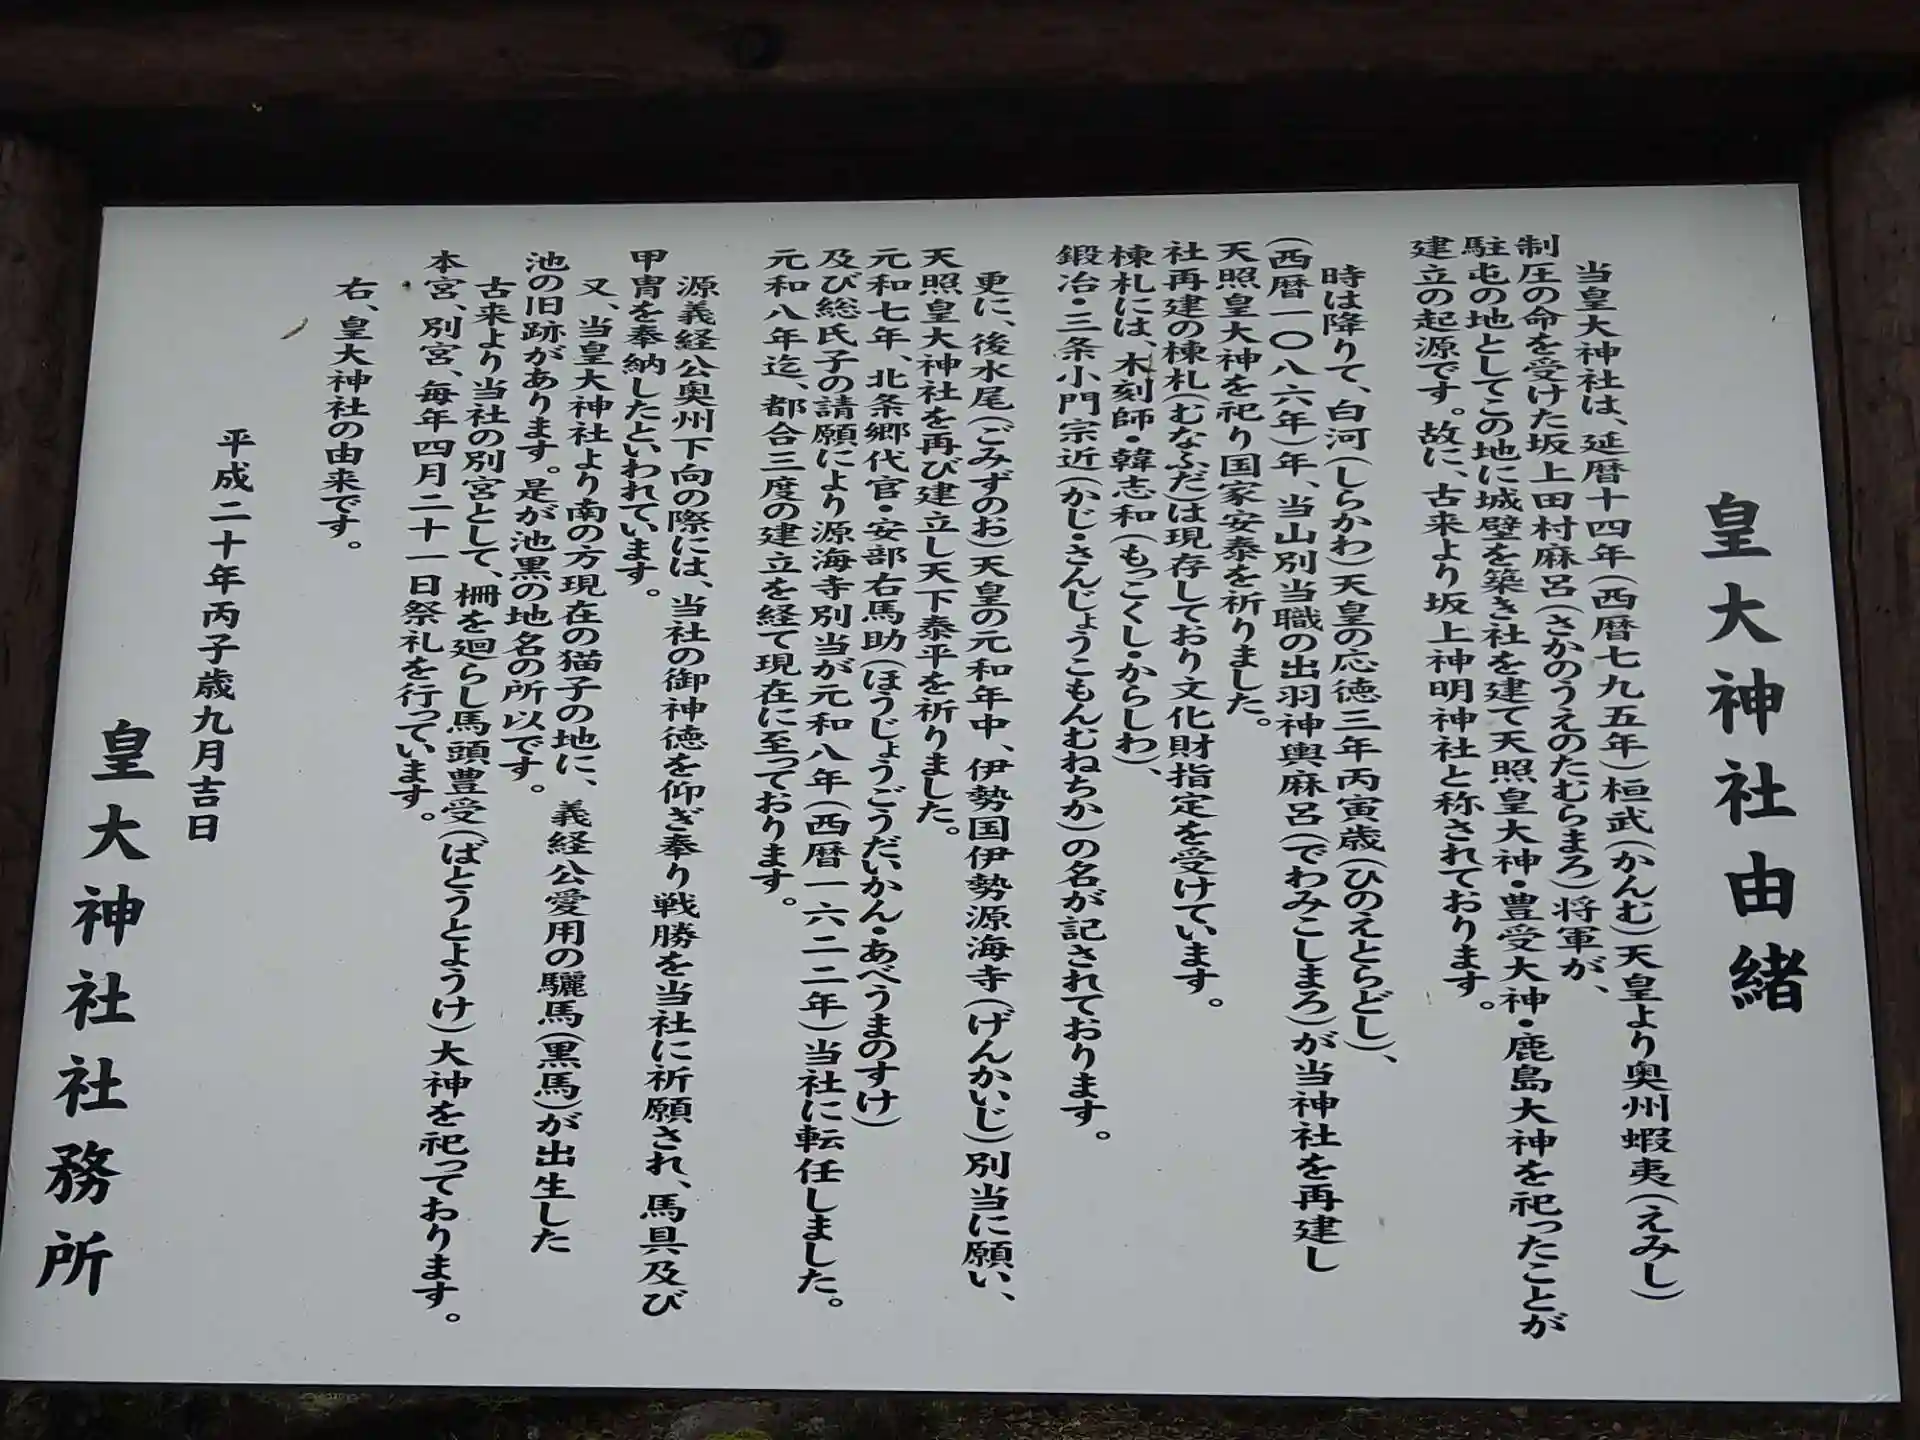 皇大神社由緒
当皇大神社は、延暦十四年(西暦七九五年)桓武(かんむ)天皇より奥州蝦夷(えみし)
制圧の命を受けた坂上田村麻呂(さかのうえのたむらまろ)将軍が、
駐屯の地としてこの地に城壁を築き社を建て天照皇大神・豊受大神・鹿島大神を祀ったことが
建立の起源です。故に、古来より坂上神明神社と称されております。
時は降りて、白河(しらかわ)天皇の応徳三年丙寅歳(ひのえとらどし)、
(西暦一〇八六年)年、当山別当職の出羽神輿麻呂(でわみこしまろ)が当神社を再建し
天照皇大神を祀り国家安泰を祈りました。
社再建の棟札(むなふだ)は現存しており文化財指定を受けています。
棟札には、木刻師・韓志和(もっこくし・からしわ)、
鍛冶・三条小門宗近(かじ・さんじょうこもんむねちか)の名が記されております。
更に、後水尾(ごみずのお)天皇の元和年中、伊勢国伊勢源海寺(げんかいじ)別当に願い、
天照皇大神社を再び建立し天下泰平を祈りました。
元和七年、北条郷代官・安部右馬助(ほうじょうごうだいかん・あべうまのすけ)
及び総氏子の請願により源海寺別当が元和八年(西暦一六二二年)当社に転任しました。
元和八年迄、都合三度の建立を経て現在に至っております。
源義経公奥州下向の際には、当社の御神徳を仰ぎ奉り戦勝を当社に祈願され、馬具及び
甲冑を奉納したといわれています。
又、当皇大神社より南の方現在の猫子の地に、義経公愛用の驪馬(黒馬)が出生した
池の旧跡があります。是が池黒の地名の所以です。
古来より当社の別宮として、柵を廻らし馬頭豊受(ばとうとようけ)大神を祀っております。
本宮、別宮、毎年四月二十一日祭礼を行っています。
右、皇大神社の由来です。
平成二十年丙子歳九月吉日
皇大神社社務所